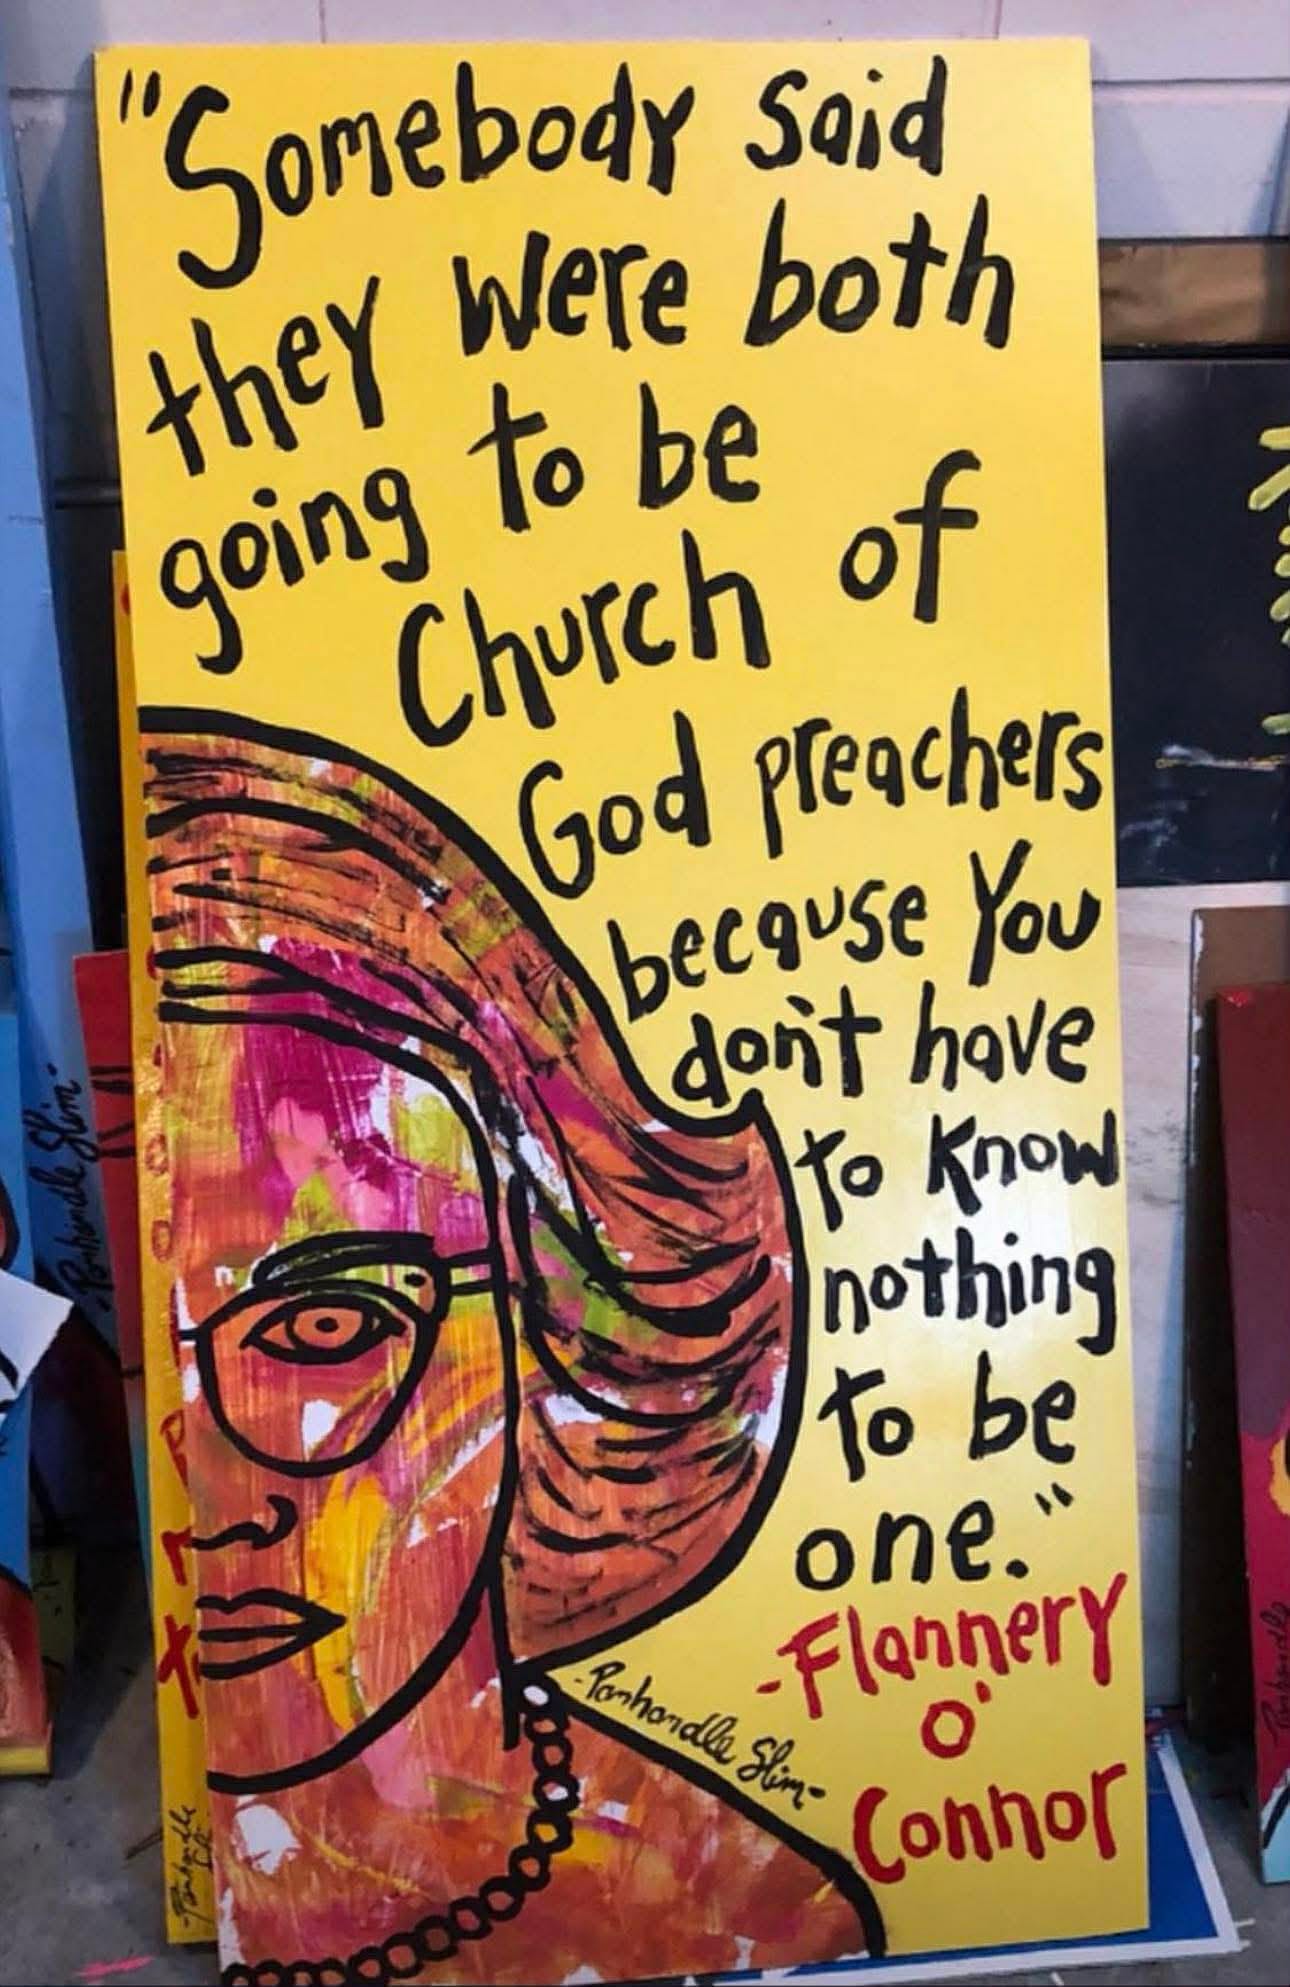 "Somebody said
they were both
going to be
Church of
God preachers
because You
don't have
to know
nothing
to be
one."
-Flannery
O'
Connor
-Panhandle Slim-
-Panhandle Slim-
Panhandle
Panhandle